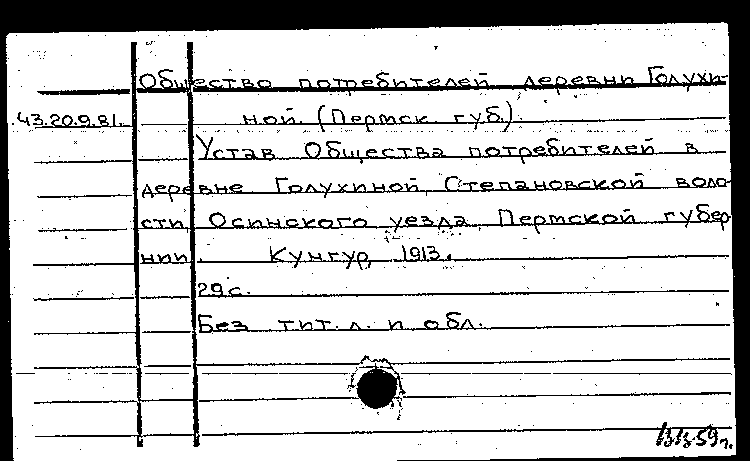 Общество потребителей деревни Голухи-
43.20.9.81. ной. (Пермск. губ.).
Устав Общества потребителей в
деревне Голухиной, Степановской воло-
сти, Осинского уезда, Пермской губер-
нии. Кунгур, 1913.
29 с.
Без тит. л. и обл.